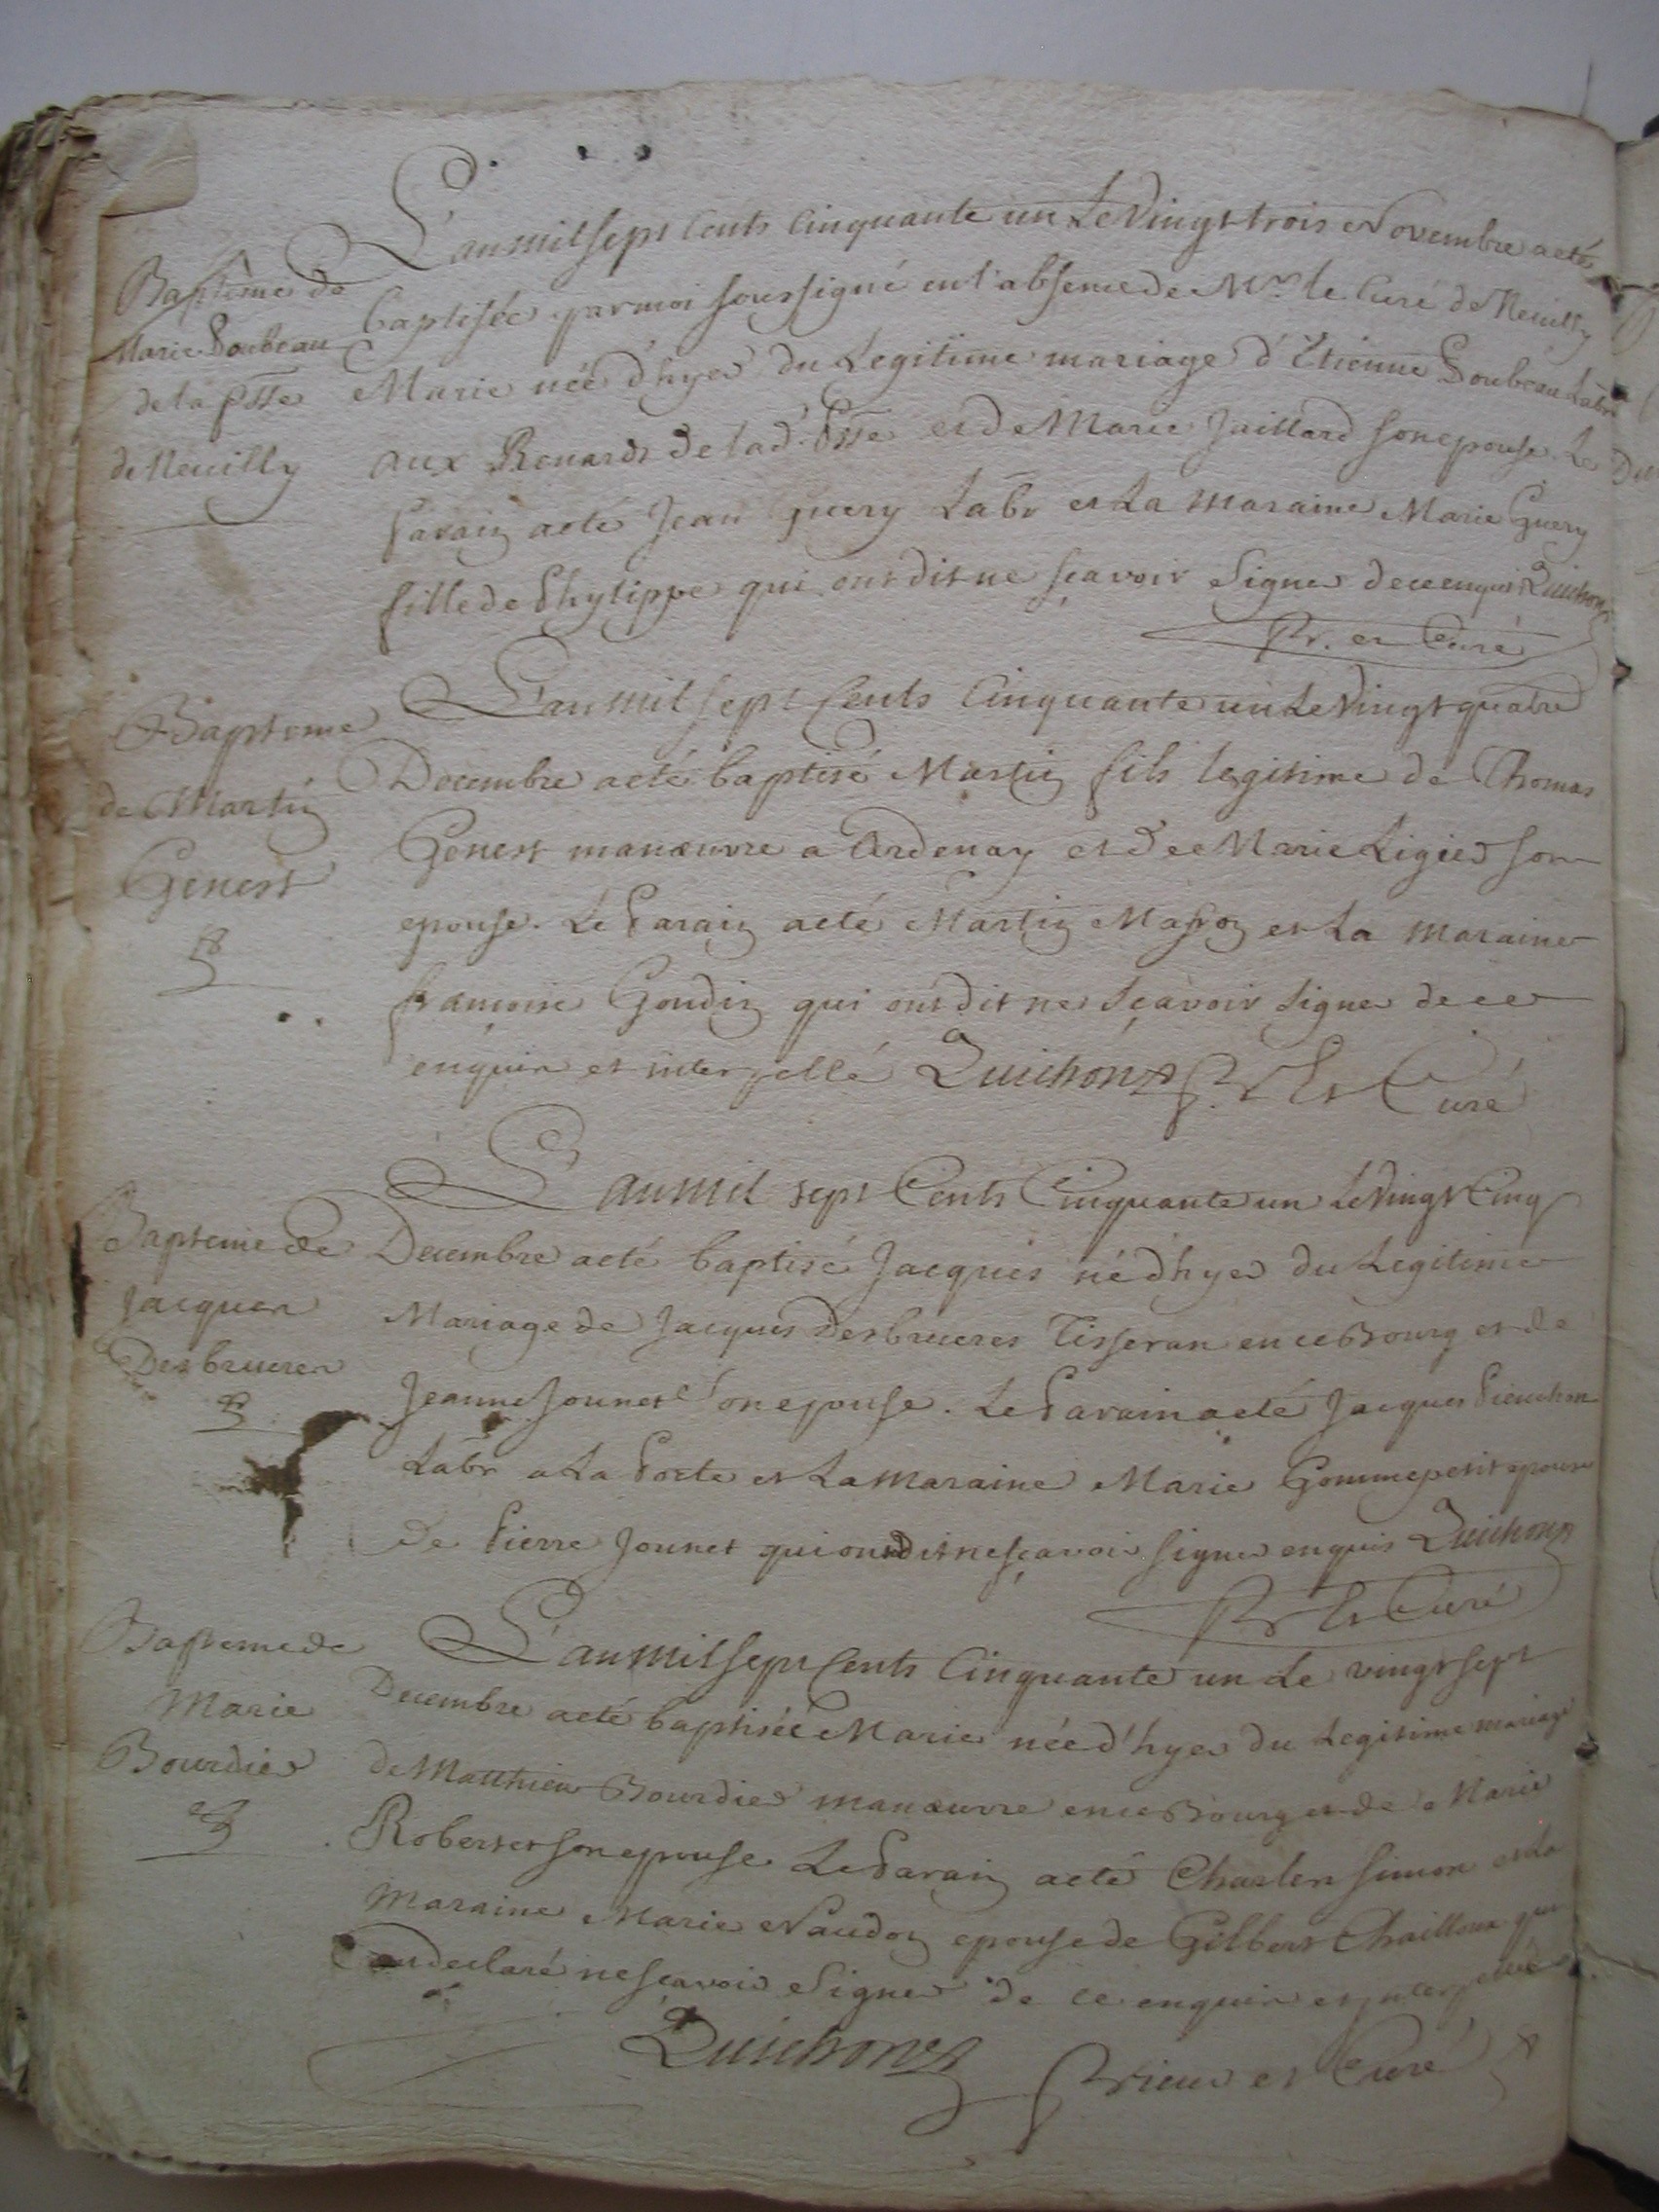 Baptême de
Marie Soubeau
de la psse
de Neuilly
L'an mil sept Cents Cinquante un Le Vingt trois Novembre a eté
baptisée par moi soussigné en l'absence de Mr. le Curé de Neuilly
Marie née d'hyer du Legitime mariage d'Etienne Soubeau Labr
aux Renards de lad. Psse et de Marie Jaillard son epouse. Le
Parain a eté Jean Guery Labr et La maraine Marie Guery
fille de Phylippe qui ont dit ne sçavoir signer de ce enquis
Pr. et Curé
Bapteme
de Martin
Genest
L'an mil sept Cents Cinquante un Le Vingt quatre
Decembre a eté baptisé Martin fils legitime de Thomas
Genest manœuvre a Ardenay et de Marie Ligier son
epouse. Le Parain a eté Martin Masson et La maraine
françoise Gondin qui ont dit ne sçavoir signer de ce
enquis et interpellé Quichon Pr Et Curé
Bapteme de
Jacques
Desbrueres
L'an mil sept Cents Cinquante un Le Vingt Cinq
Decembre a eté baptisé Jacques né d'hyer du Legitime
Mariage de Jacques Desbrueres Tisseran en ce Bourg et de
Jeanne Jounet son epouse. Le Parain a eté Jacques
Labr a La Porte et La maraine Marie Gommepetit epouse
de Pierre Jounet qui ont dit ne sçavoir signer enquis Quichon
Pr Et Curé
Bapteme de
Marie
Bourdier
L'an mil sept Cents Cinquante un Le vingt sept
Decembre a eté baptisée Marie née d'hyer du Legitime mariage
de Matthieu Bourdier manœuvre en ce Bourg et de Marie
Robert et son epouse Le Parain a eté Charles Simon et La
Maraine Marie Naudon epouse de Gilbert Chailloux qui
ont declaré ne sçavoir signer de ce enquis et interpellé
Quichon Prieur et Curé